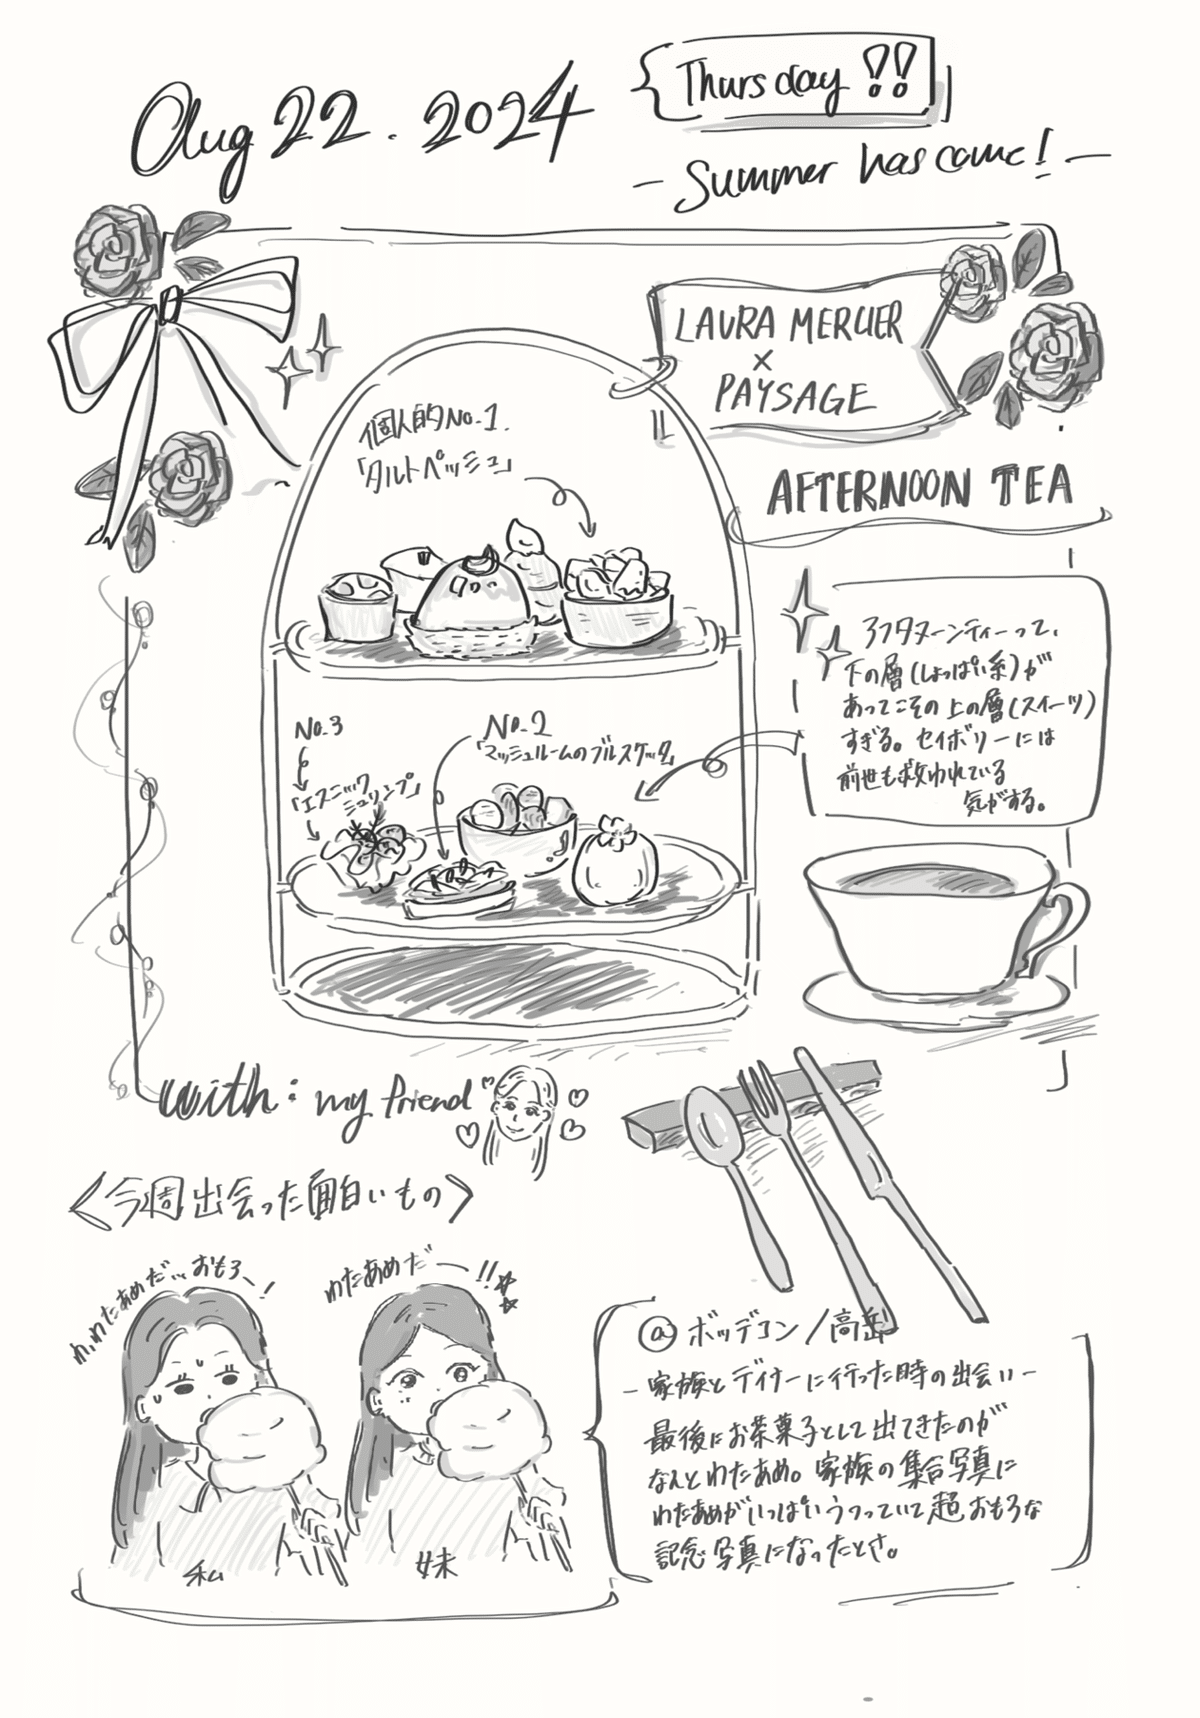 Aug 22. 2024
Thursday !!
- Summer has come! -
LAURA MERCIER
×
PAYSAGE
AFTERNOON TEA
個人的No.1.
「タルトペッシュ」
アフタヌーンティーって、
下の層(しょっぱい系)が
あってこその上の層(スイーツ)
すぎる。セイボリーには
前世も救われている
気がする。
No.3
「エスニック
シュリンプ」
No.2
「マッシュルームのブルスケッタ」
with: my friend
<今週出会った面白いもの>
わ、わたあめだ... おもろー!
わたあめだー!!
私
妹
@ボッデコン/高岳
- 家族とディナーに行った時の出会い -
最後にお茶菓子として出てきたのが
なんとわたあめ。家族の集合写真に
わたあめがいっぱいうつっていて超おもろな
記念写真になったとさ。